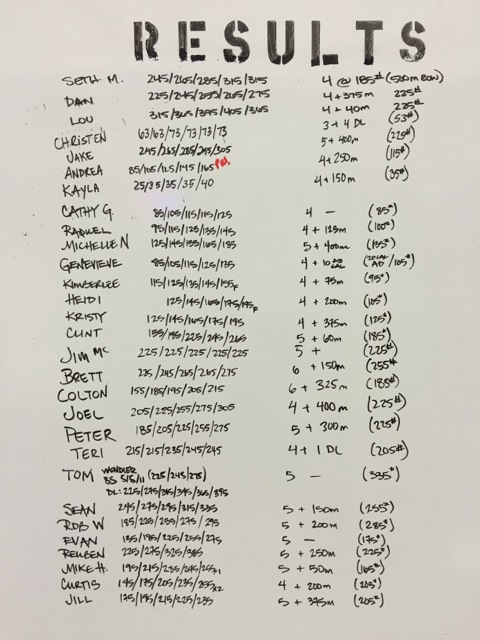 RESULTS
SETH M. 245/265/285/315/315 4 @ 185# (500m ROW)
DAN 225/245/255/265/275 4 + 375m 225#
LOU 315/365/395/405/365 4 + 40m 225#
CHRISTEN 63/63/73/73/73/73 3 + 4 DL (53#)
JAKE 245/265/285/295/305 5 + 400m (225#)
ANDREA 85/105/125/145/165 PR! 4 + 250m (115#)
KAYLA 25/35/35/35/40 4 + 150m (35#)
CATHY G. 85/105/115/115/125 4 — (85#)
RAQUEL 95/115/125/135/145 4 + 125m (100#)
MICHELLE N 125/145/155/165/185 5 + 400m (155#)
GENEVIEVE 85/105/115/125/135 4 + 10 CAL (20 CAL AD /105#)
KIMBERLEE 115/125/135/145/155F 4 + 75m (95#)
HEIDI 125/145/165/175/195F 4 + 200m (105#)
KRISTY 125/145/165/175/195 4 + 375m (125#)
CLINT 155/185/225/245/265 5 + 60m (185#)
JIM MC 225/225/225/225/225 5 + (225#)
BRETT 225/245/265/265/275 6 + 150m (255#)
COLTON 155/185/195/205/215 6 + 325m (185#)
JOEL 205/225/255/275/305 4 + 400m (225#)
PETER 185/205/225/255/275 5 + 300m (225#)
TERI 215/215/235/245/245 4 + 1 DL (205#)
TOM WENDLER BS 5/5/11 (225/245/275) 5 — (335#)
DL: 225/275/315/345/365/395
SEAN 245/275/295/315/335 5 + 150m (255#)
ROB W 185/225/255/275/295 5 + 200m (285#)
EVAN 135/185/225/255/275 5 — (175#)
REUBEN 225/275/325/385 5 + 250m (225#)
MIKE H. 195/215/235/245/255x1 5 + 50m (165#)
CURTIS 145/175/205/235/255x2 4 + 200m (205#)
JILL 175/195/215/225/235 5 + 375m (205#)